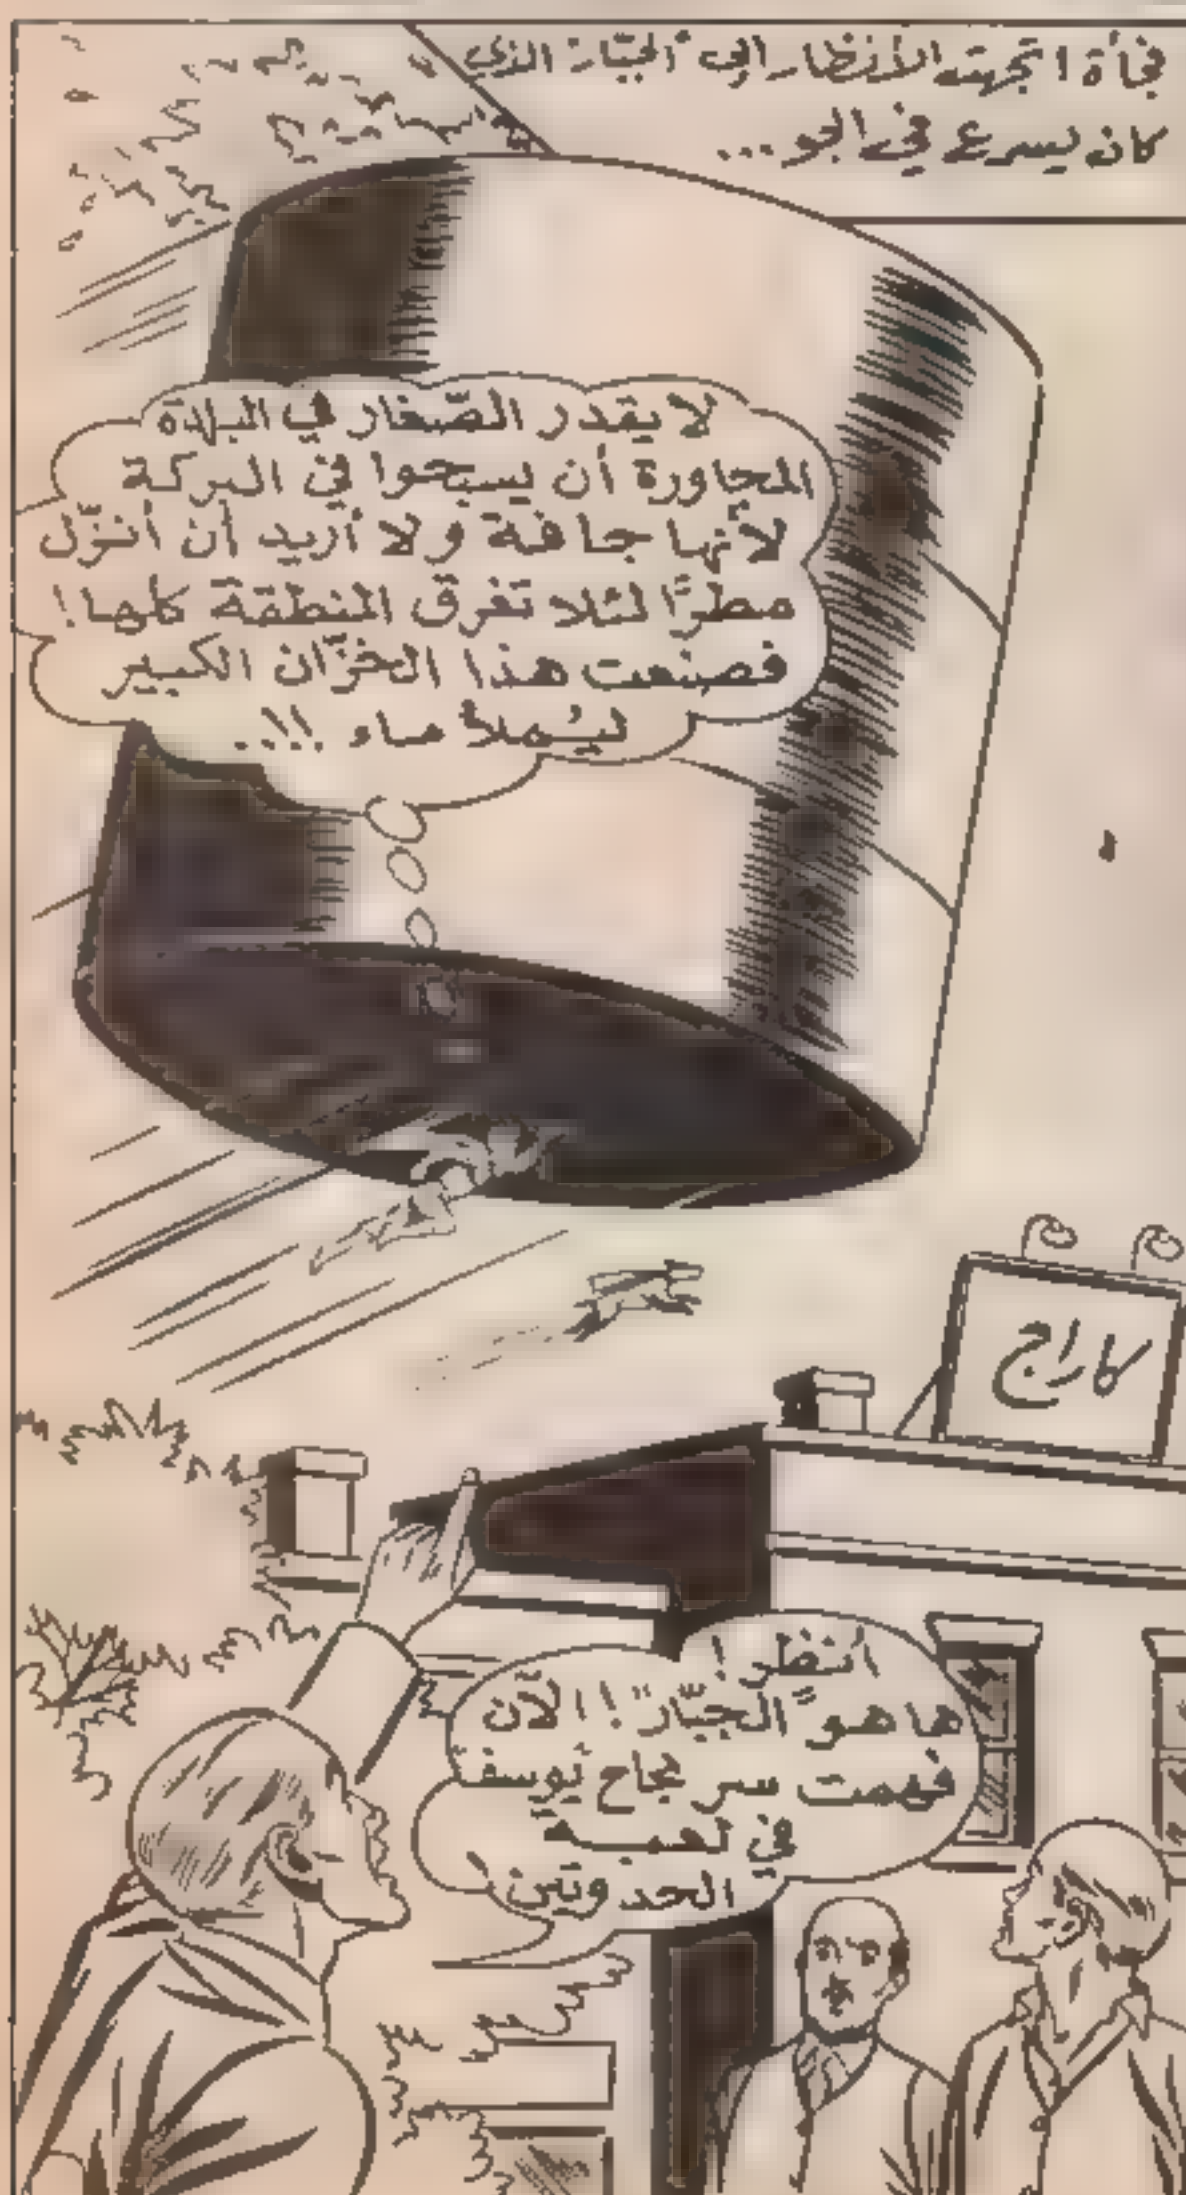 فجأة اتجهت الأنظار إلى "الجبّار" الذي
كان يسرع في الجو...
لا يقدر الصّغار في البلدة
المجاورة أن يسبحوا في البركة
لأنها جافة ولا أريد أن أنزّل
مطرًا لئلا تغرق المنطقة كلها!
فصنعت هذا الخزّان الكبير
ليُملأ ماء !!..
كاراج
انظر!
ها هو "الجبّار"! الآن
فهمت سر نجاح يوسف
في لعبة
الحدوتين!